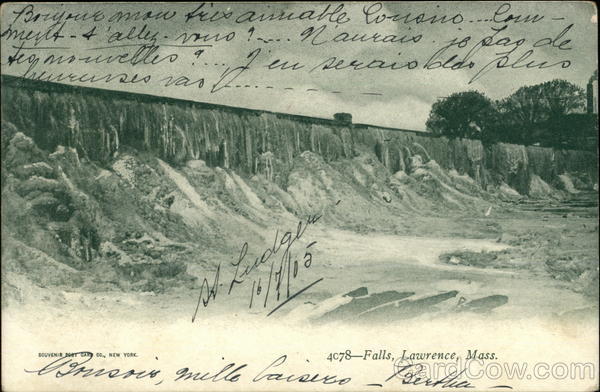 Bonjour mon tres aimable Cousin....Com-
ment-t'allez-vous?....N'aurais je pas de
tes nouvelles?... J'en serais des plus
heureuses va!
St. Ludger
16/7/05
SOUVENIR POST CARD CO., NEW YORK.
4078—Falls, Lawrence, Mass.
Bonsoir, mille baisers – Bertha –
CardCow.com